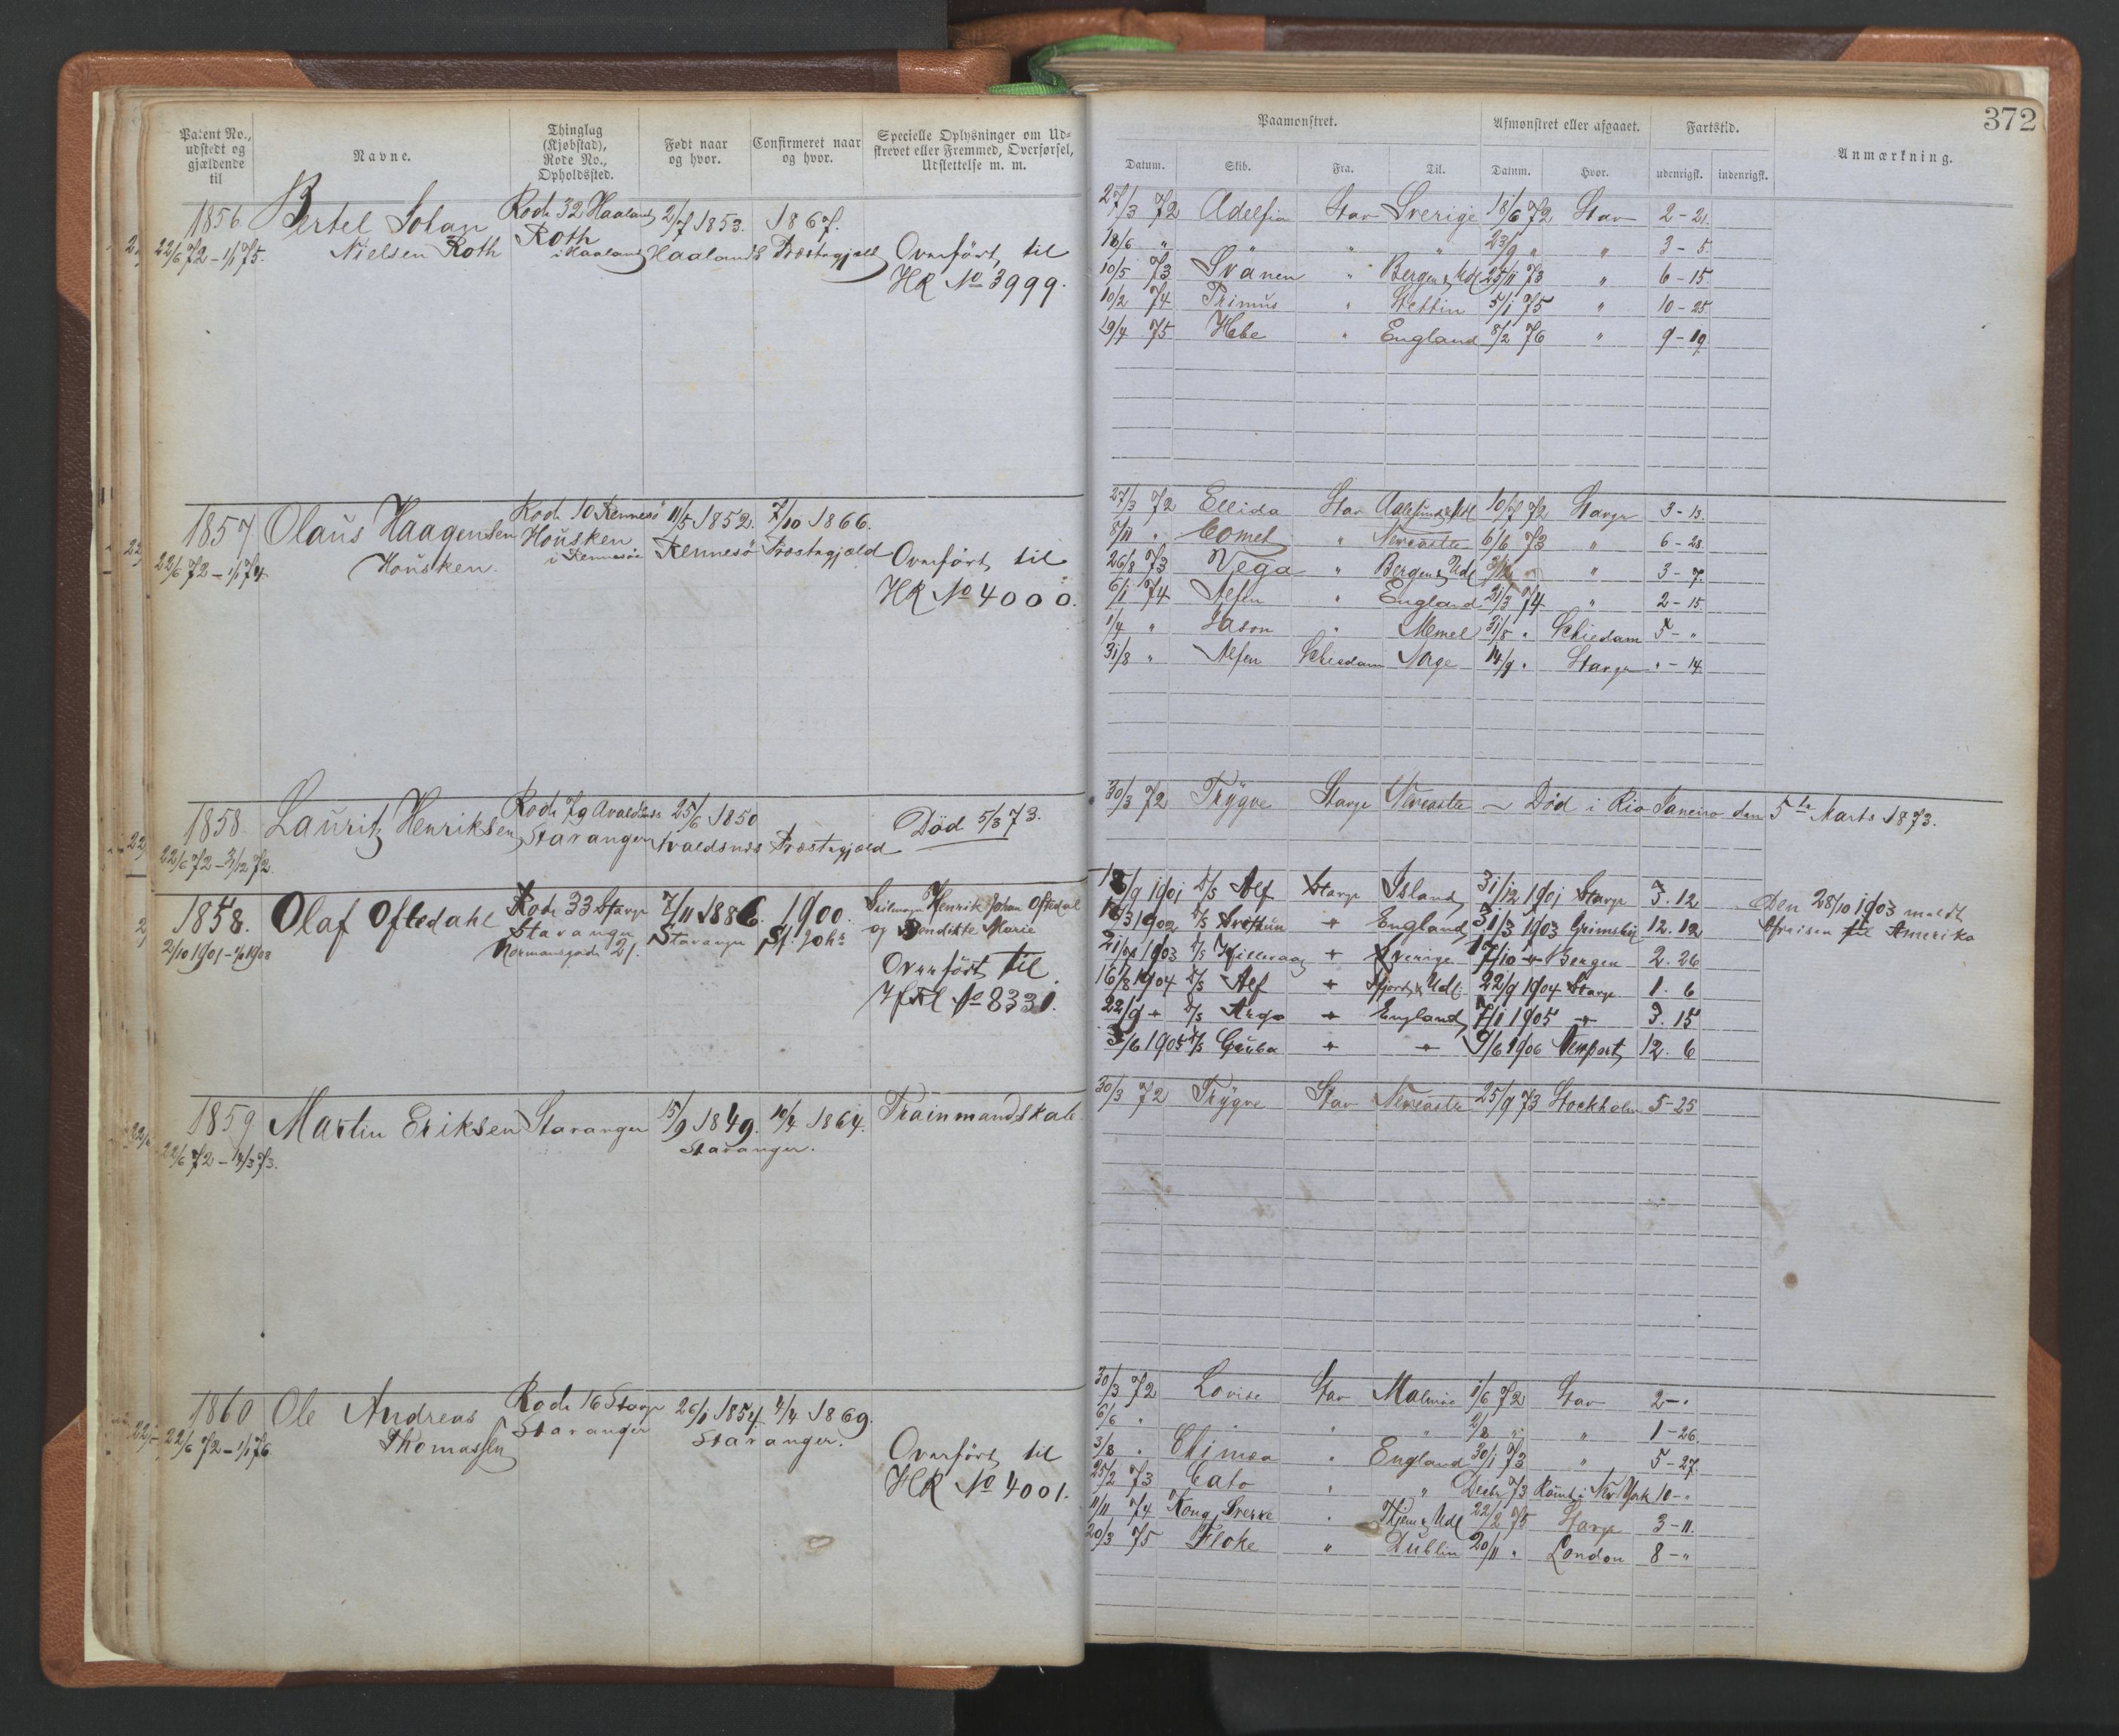 372
Patent No., udstedt og gjældende til
Navne.
Thinglag (Kjøbstad), Rode No., Opholdssted.
Født naar og hvor.
Confirmeret naar og hvor.
Specielle Oplysninger om Udskrevet eller Fremmed, Overførsel, Udslettelse m. m.
Paamonstret.
Afmonstret eller afgaaet.
Fartstid.
Anmærkning.
Datum. Skib. Fra. Til. Datum. Hvor. udenrigsk. indenrigsk.
1856 Bertel Johan Rode 32 Haaland 2/7 1853. 1867.
22/6 72 - 1/1 75. Nielsen Roth Roth i Haaland Haalands Præstegjeld Overført til
HR No 3999.
27/3 72 Adelfia Stav Sverige 18/6 72 Stav 2 - 21.
18/6 " " " " 23/9 " " 3 - 5.
10/5 73 Svanen " Bergen & Udl 25/11 73 " 6 - 15.
10/2 74 Primus " Stettin 5/1 75 " 10 - 25.
19/4 75 Hebe " England 8/2 76 " 9 - 19.
1857 Olaus Haagensen Rode 10 Rennesø 11/5 1852. 7/10 1866.
22/6 72 - 1/1 74 Housken. Housken i Rennesøe Rennesö Præstegjeld Overført til
HR No 4000.
27/3 72 Ellida Stav Aalesund & Udl 10/7 72 Stavgr 3 - 13.
8/11 " Comet " Newcastle 6/6 73 " 6 - 28.
26/8 73 Vega " Bergen & Udl " " 3 - 7.
6/1 74 Alfen " England 21/3 74 " 2 - 15
1/4 " Jason " Memel 31/8 " Schiedam 5 - "
31/8 " Alfen Schiedam Norge 14/9 " Stavgr " - 14.
1858 Lauritz Henriksen Rode 79 Avaldsnes 25/6 1850 Død 5/3 73.
22/6 72 - 31/12 72. Stavanger Avaldsnes Præstegjæld
30/3 72 Trÿgve Stavgr Newcastle - Död i Rio Janeiro den 5te Marts 1873.
1858. Olaf Oftedahl Rode 33 Stavgr 7/11 1886. 1900. Henrik Johan Oftedal
2/10 1901 - 1908 Stavanger Stavanger St. Johs og Bendikte Marie
Normansgade 21. Overført til
No 8330.
18/9 1901 D/S Alf Stavgr Island 31/12 1901 Stavgr 3. 12
1902 D/S " England 31/3 1903 Grimsby 12. 12
1903 D/S " Sverige 17/10 " Bergen 2. 26
16/8 1904 D/S Alf " Fjord & Udl. 22/9 1904 Stavgr 1. 6
22/9 " D/S Argo " England 7/1 1905 " 3. 15
3/6 1905 D/S " " 9/6 1906 Newport 12. 6
Den 28/10 1903 meldt
Afreisen til Amerika
1859 Martin Eriksen Stavanger 15/9 1849. 10/4 1864. Trainmandskab.
22/6 72 - 14/3 73. Stavanger.
30/3 72 Trÿgve Stav Newcastle 25/9 73 Stockholm 5 - 25
1860 Ole Andreas Rode 16 Stavgr 26/1 1854 4/4 1869.
22/6 72 - 1/1 76 Thomassen Stavanger Stavanger. Overført til
HR No 4001.
30/3 72 Lovise Stav Malmø 1/6 72 Stav 2 - "
6/6 " " " " 2/8 " " 1 - 26.
3/8 " " England 30/1 73 " 5 - 27.
25/2 73 Cato " " Decbr 73 Rømt i New York 10 - "
11/11 74 Kong Sverre " Hjem & Udl 22/2 75 Stavgr 3 - 11.
20/3 75 Floke " Dublin 20/11 " London 8 - "